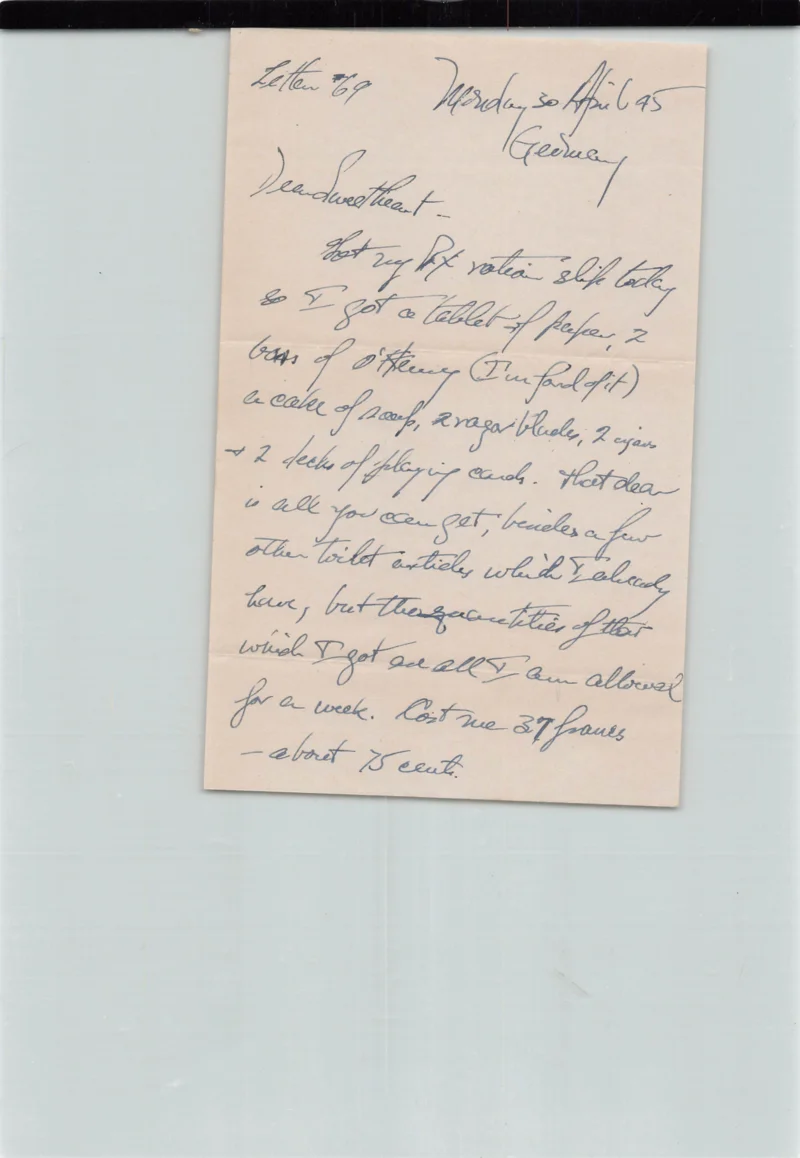 Letter #69
Monday 30 April 45
Germany
Dear Sweetheart -
Got my PX ration slip today
so I got a tablet of paper, 2
bars of O'Henry (I'm fond of it)
a cake of soap, 2 razor blades, 2 cigars
+ 2 decks of playing cards. That dear
is all you can get, besides a few
other toilet articles which I already
have, but the quantities of that
which I got are all I am allowed
for a week. Cost me 37 francs
- about 75 cents.